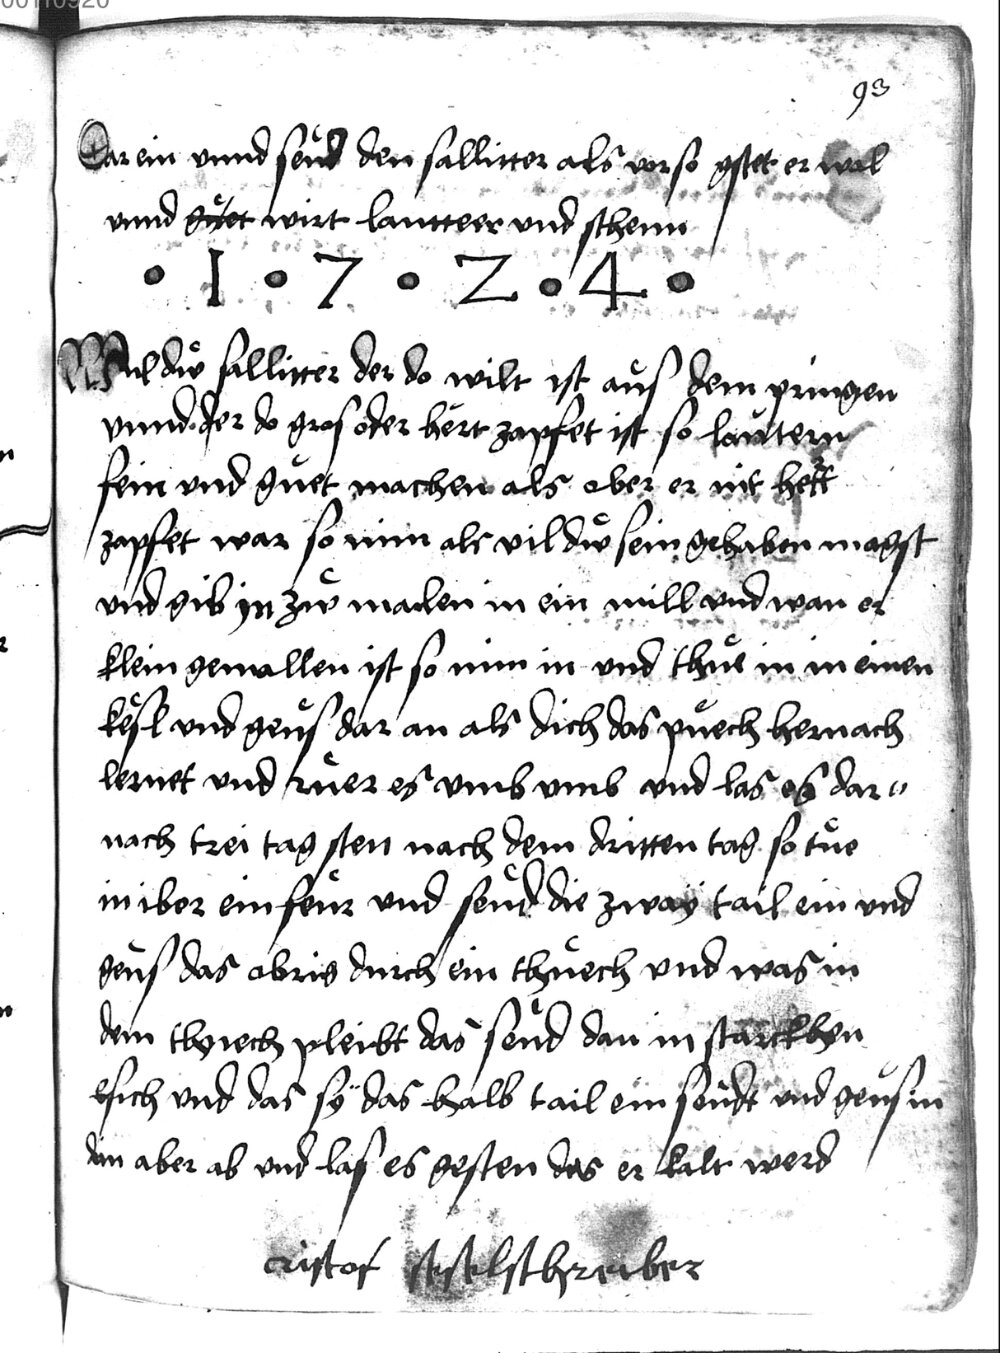 00110920
93
Dar ein unnd seud den sallitter als vor so gstet er wol
unnd guet wirt lautteer und schenn
• 1 • 7 • Z • 4 •
Wil dw sallitter der do wilt ist aus dem pringen
unnd der do gros oder hert zapfet ist so lautern
fein und guet machen als ober er nit hett
zapfet war so nim als vil dw sein gehaben magst
und gib in zw mallen in ein mill und wan er
klein gemallen ist so nim in und thue in in einen
kesl und geus dar an als dich das puech hernach
lernet und ruer es umb umb und las es dar"
nach trei tag sten nach dem dritten tag so tue
in iber ein feur und seud die zway tail ein und
geus das obrig durch ein thuech und was in
dem thuech pleibt das seud dan in starckhen
esich und das sy das halb tail ein seudt und geus in
dan aber ab und las es gesten das er kalt werd
cristof seselschreiber